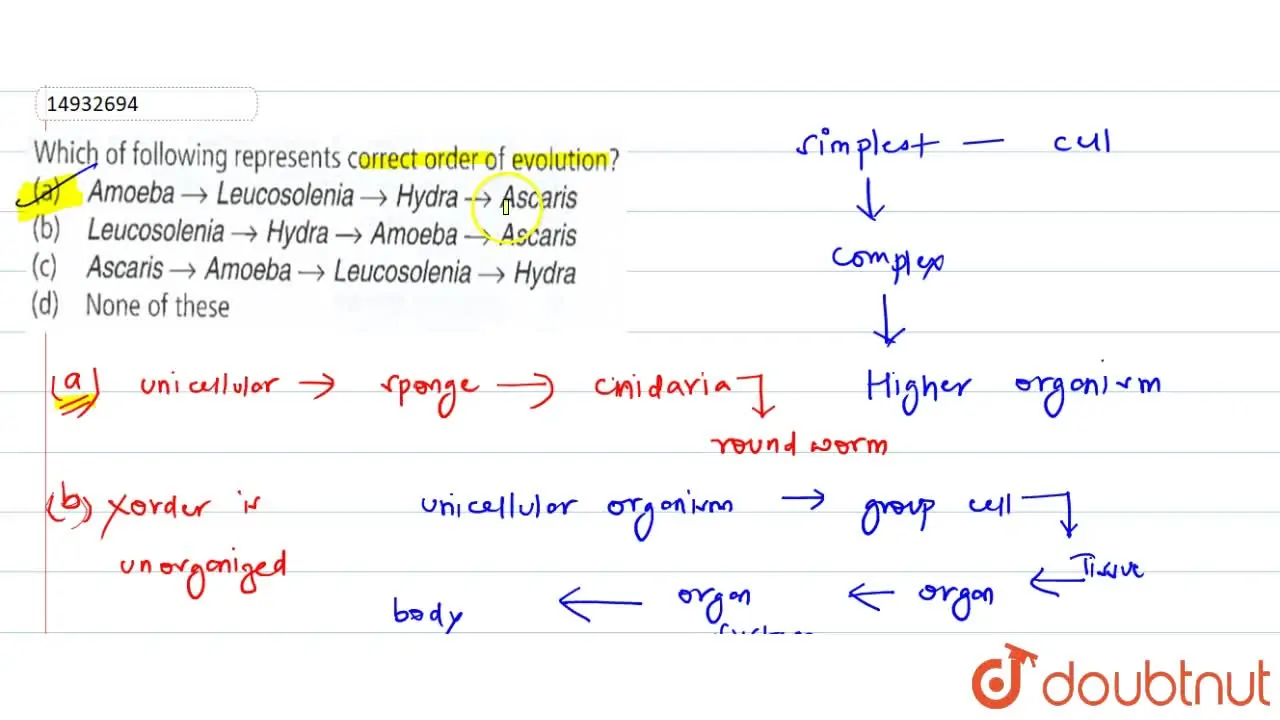 14932694
Which of following represents correct order of evolution?
(a) Amoeba → Leucosolenia → Hydra → Ascaris
(b) Leucosolenia → Hydra → Amoeba → Ascaris
(c) Ascaris → Amoeba → Leucosolenia → Hydra
(d) None of these
simplest — cell
↓
complex
↓
Higher organism
(a) unicellular → sponge → cinidaria
round worm
(b) xorder is
unorganized
unicellular organism → group cell
Tissue
body ← organ ← organ ←
doubtnut